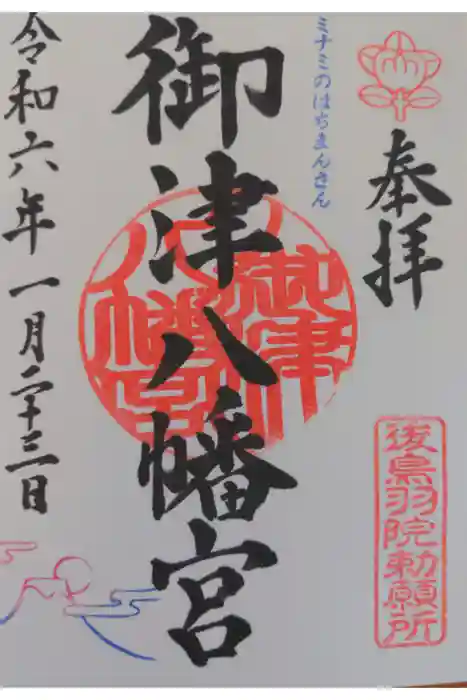 奉拝
後鳥羽院勅願所
ミナミのはちまんさん
御津八幡宮
御津
八幡宮
令和六年一月二十三日